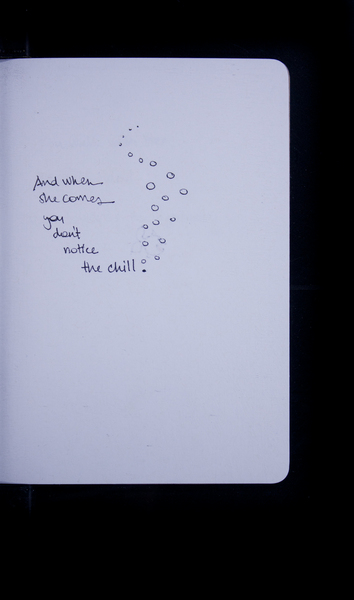 And when
she comes
you
don't
notice
the chill.